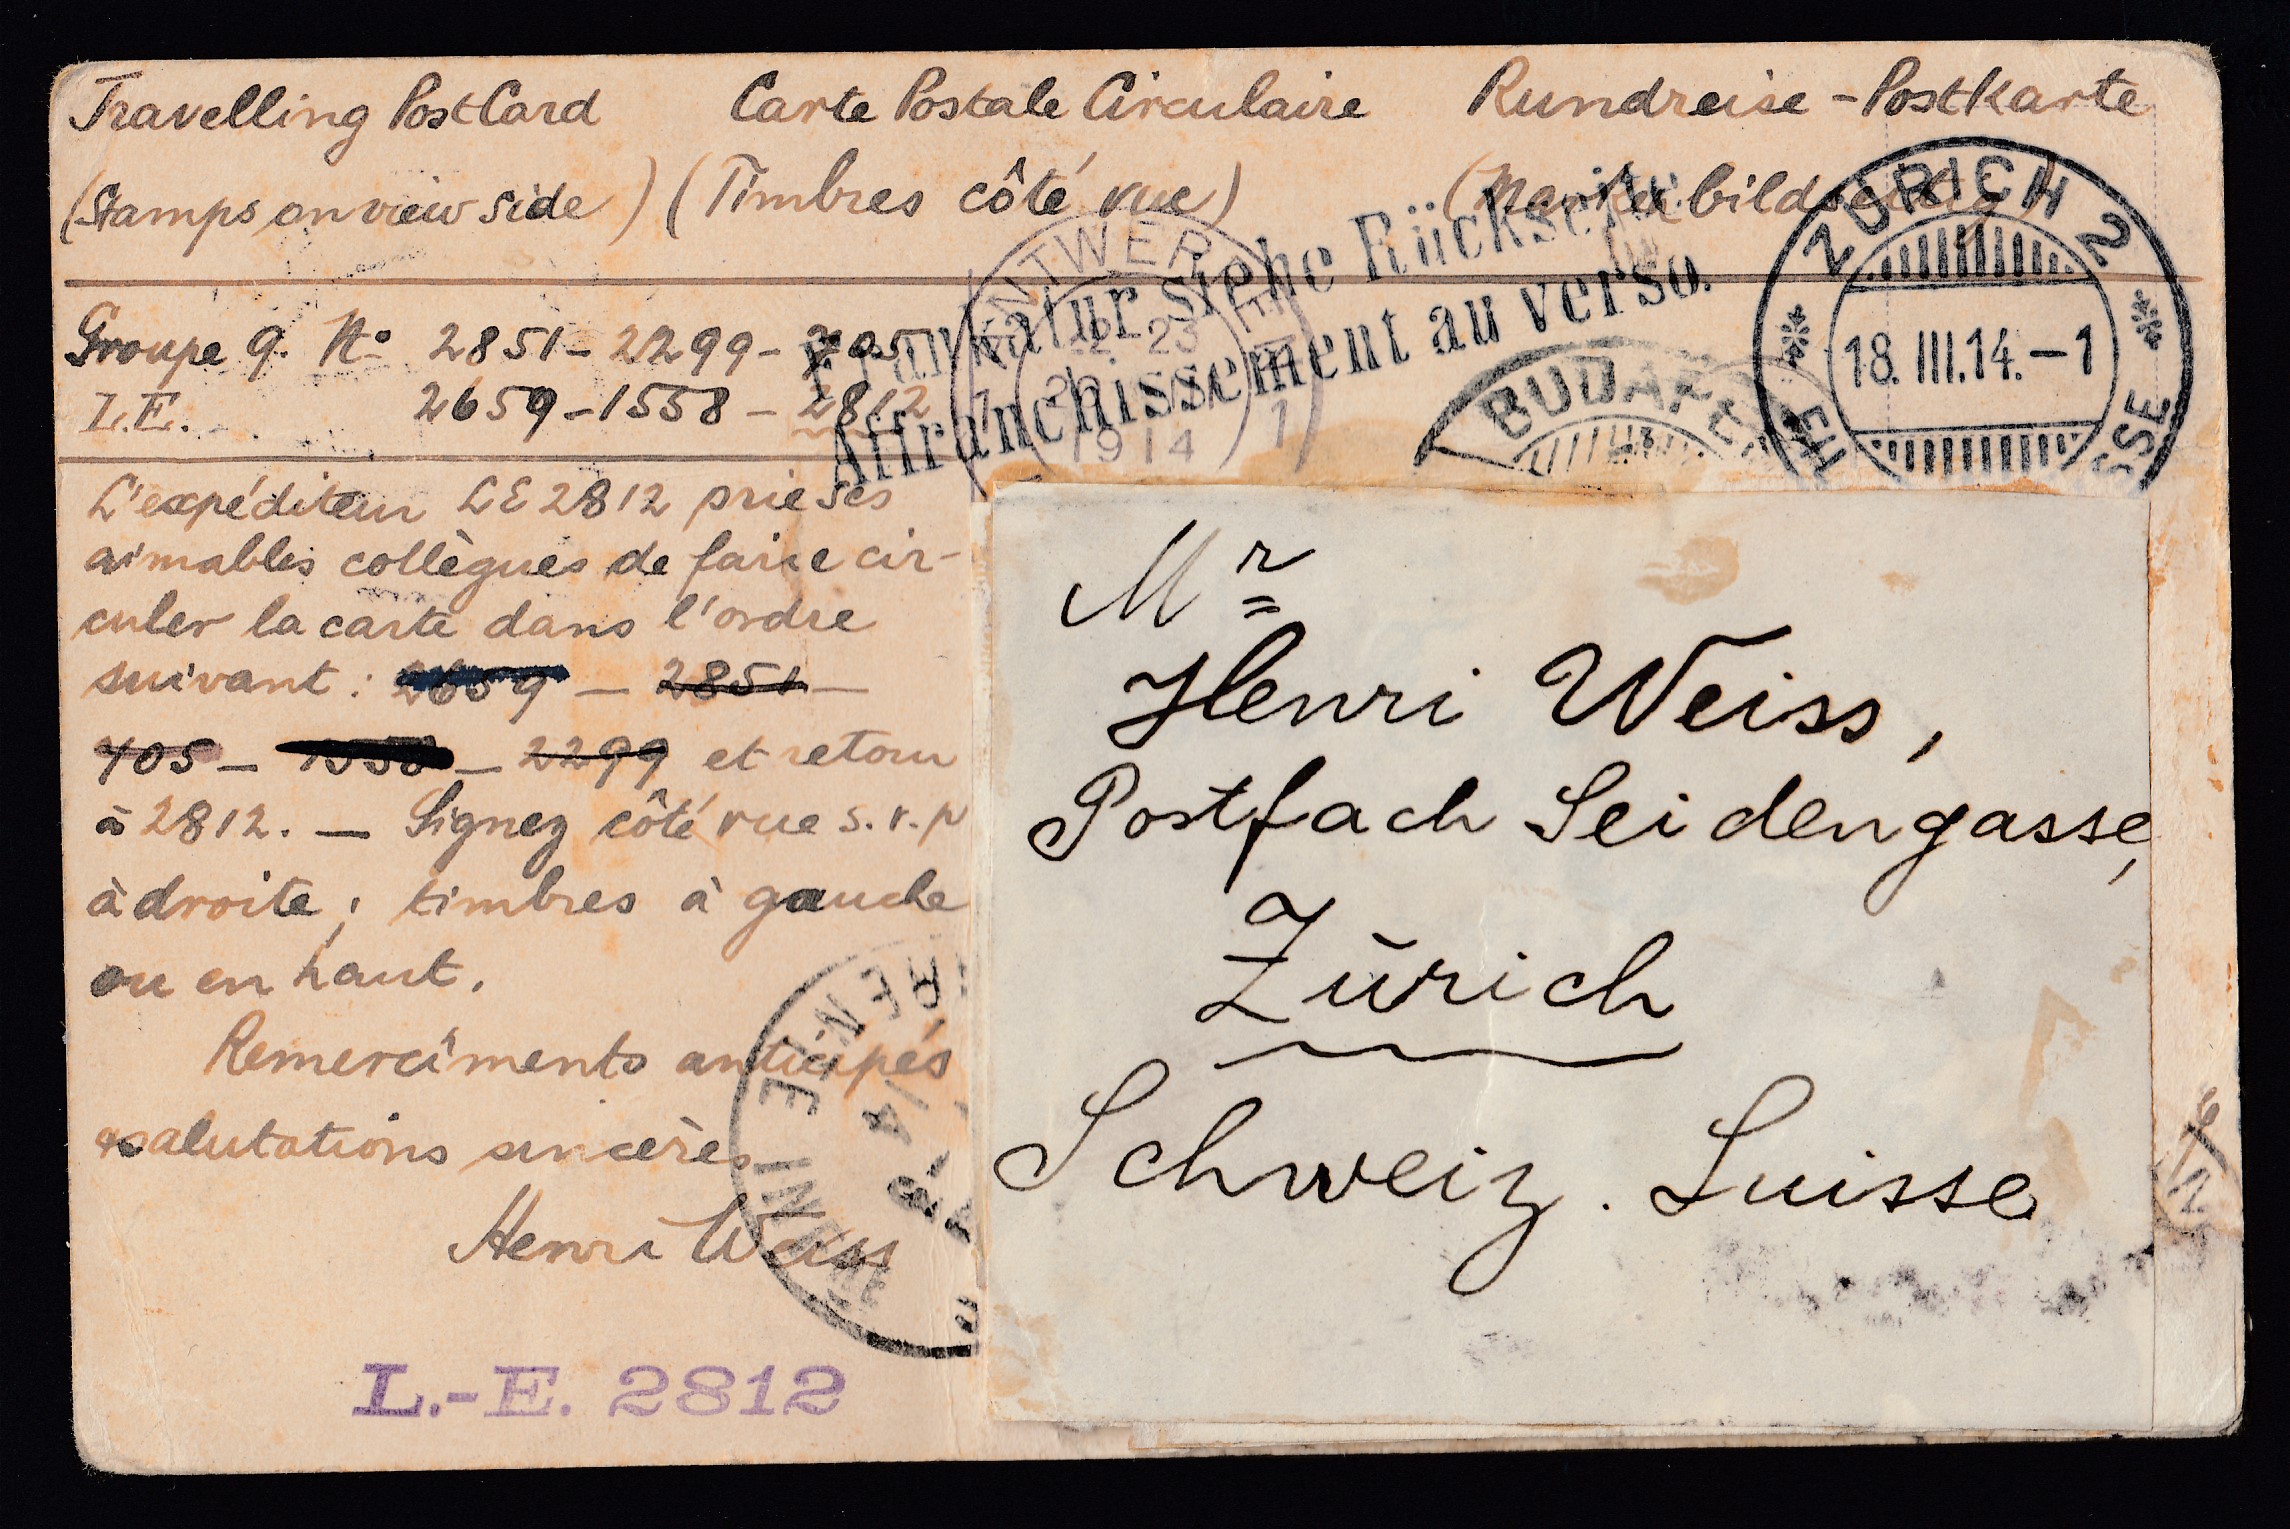 Travelling PostCard Carte Postale Circulaire Rundreise - Postkarte
(Stamps on view side) (Timbres côté vue) (Marken bildseitig)
Frankatur siehe Rückseite
Affranchissement au verso.
ZÜRICH 2
18. III. 14. – 1
ANTWERPEN
1914
BUDAPE
Groupe 9. No 2851 - 2299 - 705
L.E. 2659 - 1558 - 2812
L'expéditeur LE 2812 prie ses
aimables collègues de faire cir-
culer la carte dans l'ordre
suivant : 2659 - 2851 -
705 - 1558 - 2299 et retour
à 2812. — Signez côté vue s.v.p
à droite ; timbres à gauche
ou en haut.
Remerciments anticipés
salutations sincères
Henri Weiss
L.-E. 2812
Mr
Henri Weiss,
Postfach Seidengasse,
Zürich
Schweiz. Suisse